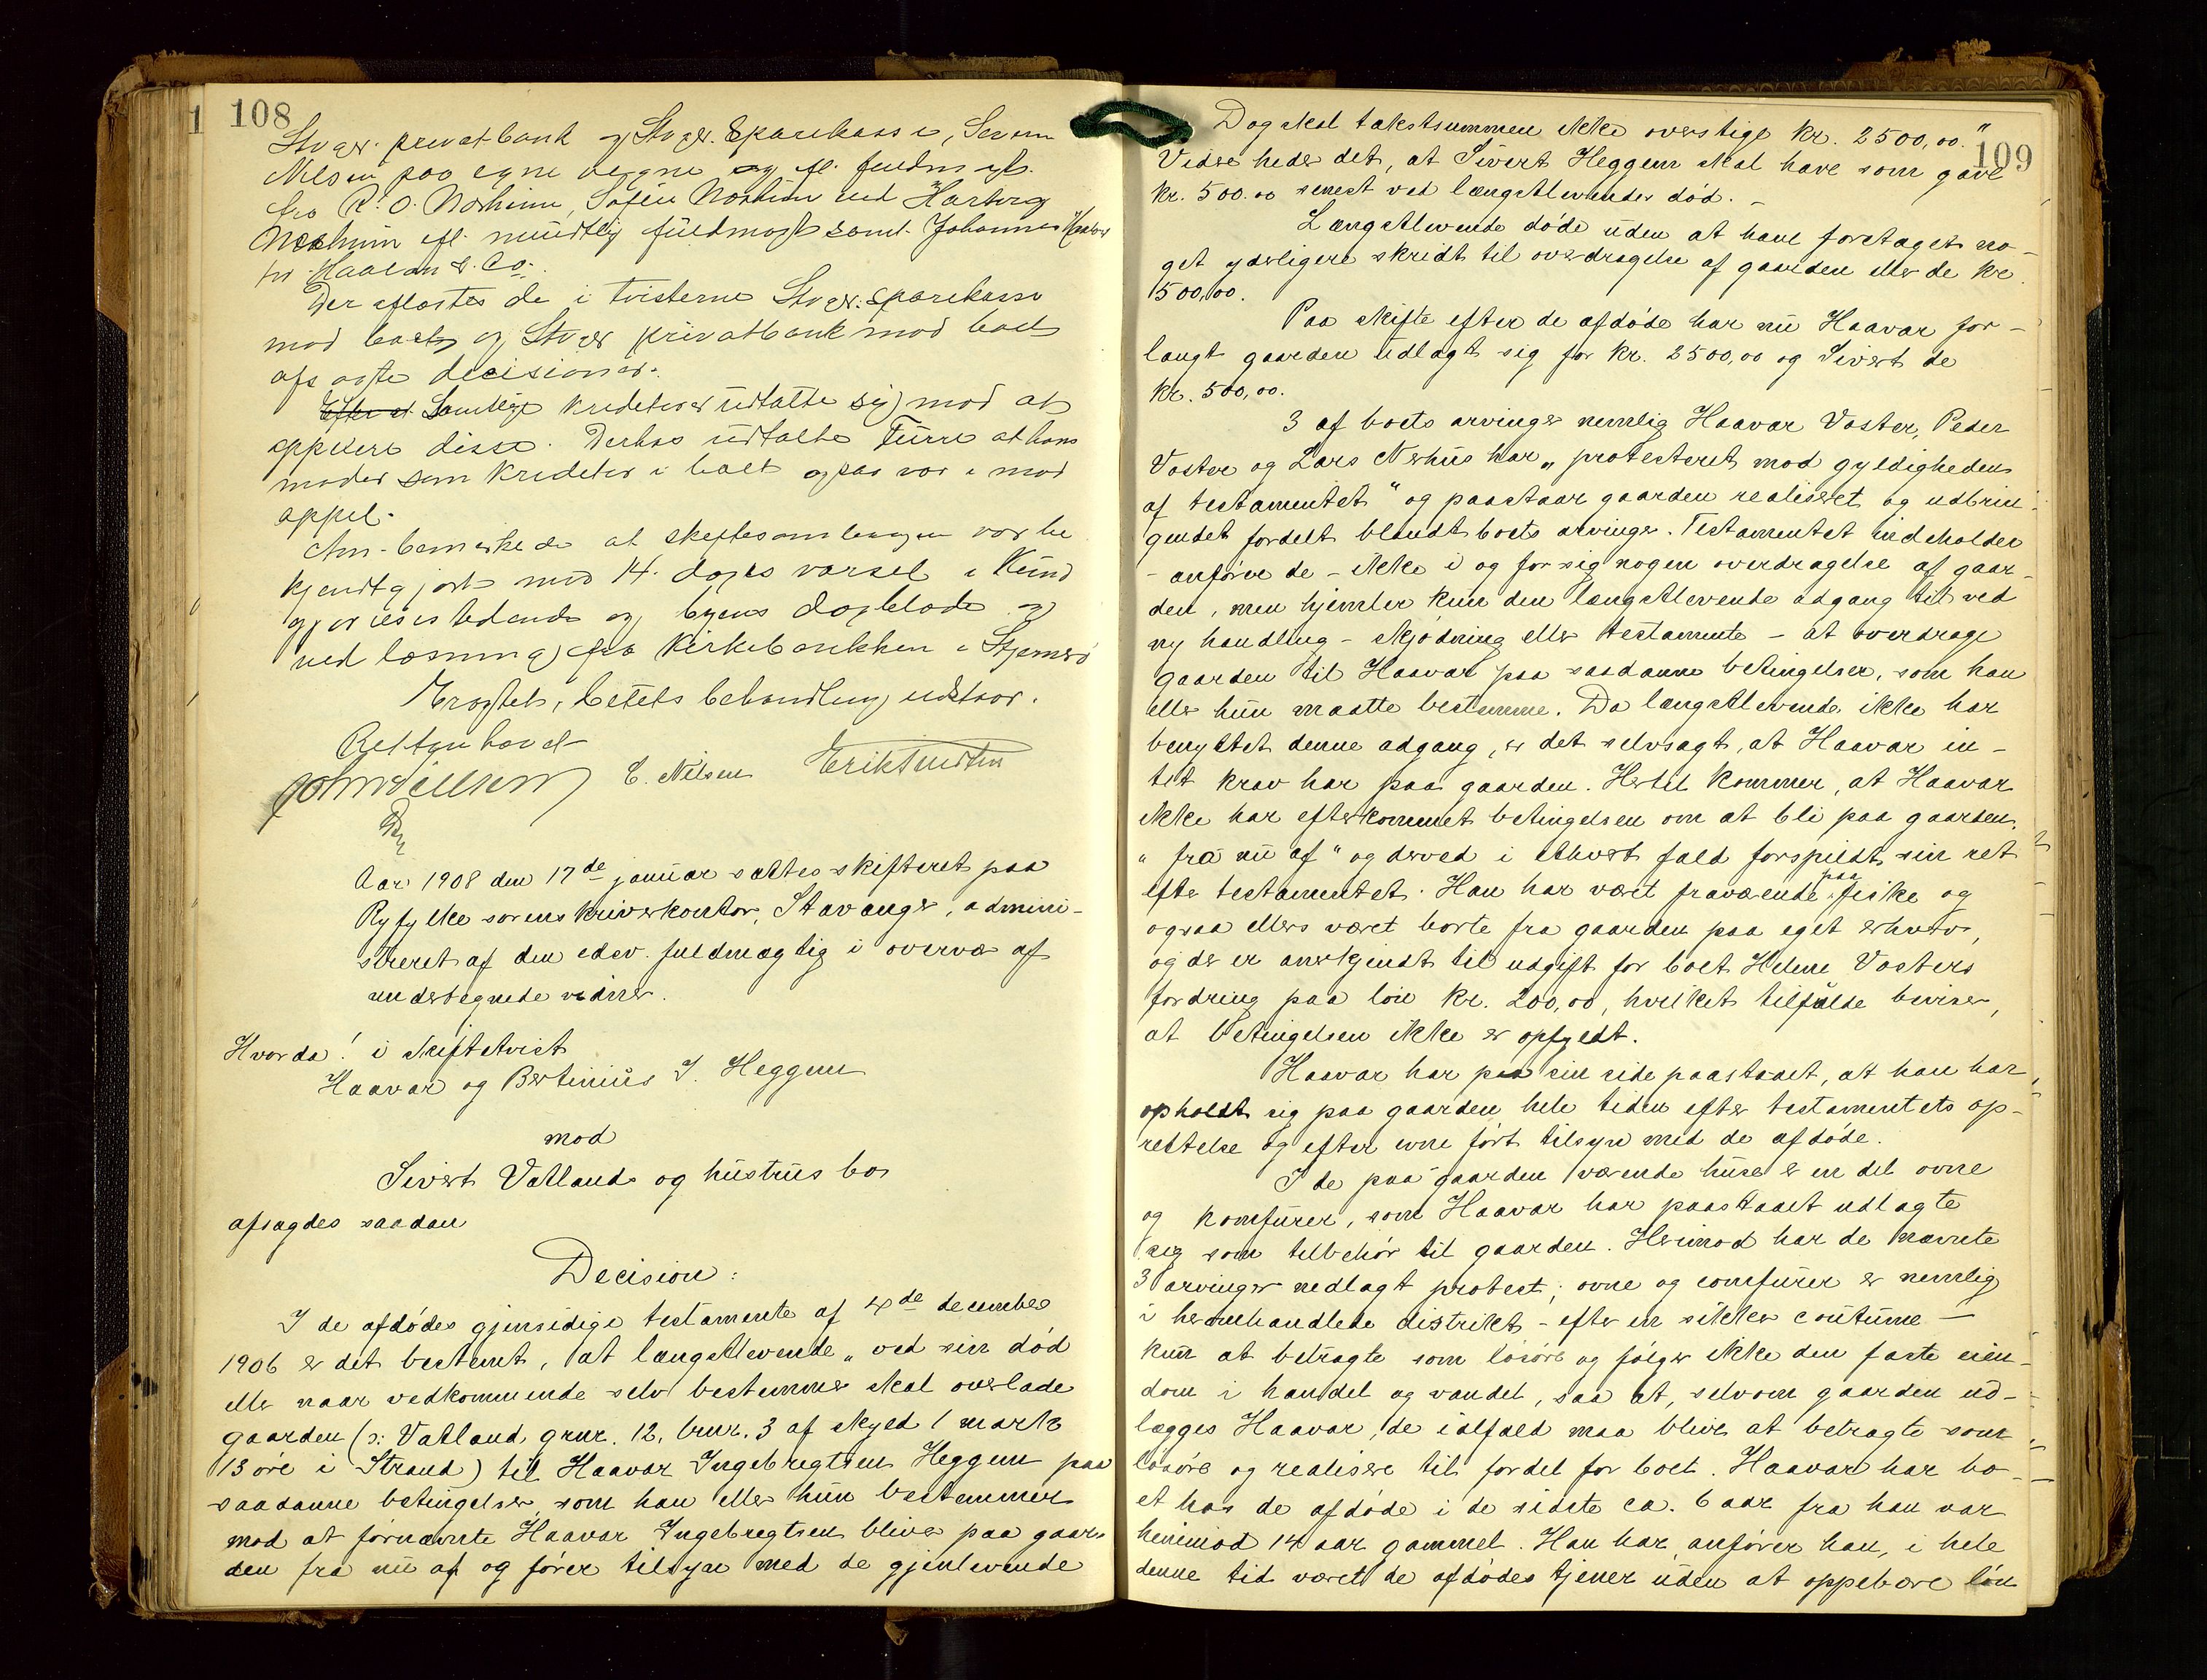 108
Stvgr. privatbank og Stvgr. Sparekasse, Severin
Nilsen paa egne vegne og efl. fuldm. gt.
fra R. O. Norheim, Sofie Norheim ved Hartvig
Norheim efl. mundtlig fuldmagt samt Johannes
for Haaland & Co.
Der oplæstes de i tvisterne Stvgr. sparekasse
mod boet og Stvgr privatbank mod boet
afsagte decisioner.
Efter at Samtlige kreditorer udtalte sig mod at
appelere disse. Derhos udtalte Turre at hans
moder som kreditor i boet ogsaa var imod
appel.
Anm. bemerkede at skiftesamlingen var be
kjendtgjort med 14. dages varsel i Kund
gjørelsestidende og byens dagblade og
ved læsning fra kirkebakken i Stjernerø
Utsat, boets behandling udstaar.
Retten hævet
E. Nilsen Erik Knudsen
Aar 1908 den 17de januar sattes skifteret paa
Ryfylke sorenskriverkontor, Stavanger, admini-
streret af den edsv. fuldmægtig i overvær af
undertegnede vidner.
Hvorda! i skiftetvist
Haavar og Bertinius I. Heggem
mod
Sivert Vatland og hustrus bo
afsagdes saadan
Decision:
I de afdødes gjensidige testamente af 4de december
1906 er det bestemt, at længstlevende „ ved sin død
eller naar vedkommende selv bestemmer skal overlade
gaarden (ɔ: Vatland gnr. 12, bnr. 3 af skyld 1 mark
13 øre i Strand) til Haavar Ingebregtsen Heggem paa
saadanne betingelser, som han eller hun bestemmer
mod at førnævnte Haavar Ingebregtsen bliver paa gaar-
den fra nu af og fører tilsyn med de gjenlevende
109
Dog skal takstsummen ikke overstige kr. 2500,00."
Videre heder det, at Sivert Heggem skal have som gave
kr. 500.00 senest ved længstlevendes død. -
Længstlevende døde uden at have foretaget no-
get yderligere skridt til overdragelse af gaarden eller de kr.
500,00.
Paa skifte efter de afdøde har nu Haavar for-
langt gaarden udlagt sig for kr. 2500,00 og Sivert de
kr. 500,00.
3 af boets arvinger nemlig Haavar Voster, Peder
Voster og Lars Nerhus har „ protesteret mod gyldigheden
af testamentet" og paastaar gaarden realiseret og udbrin-
gendet fordelt blandt boets arvinger. Testamentet indeholder
- anfører de - ikke i og for sig nogen overdragelse af gaar-
den, men hjemler kun den længstlevende adgang til ved
ny handling - skjødning eller testamente - at overdrage
gaarden til Haavar paa saadanne betingelser, som han
eller hun maatte bestemme. Da længstlevende ikke har
benyttet denne adgang, er det selvsagt, at Haavar in-
tet krav har paa gaarden. Hertil kommer, at Haavar
ikke har efterkommet betingelsen om at bli paa gaarden
" fra nu af" og derved i ethvert fald forspildt sin ret
efter testamentet. Han har været fraværende paa fiske og
ogsaa ellers været borte fra gaarden paa eget erhverv,
og der er anerkjendt til udgift for boet Helene Vosters
fordring paa løn kr. 200,00, hvilket tilfulde beviser,
at betingelsen ikke er opfyldt.
Haavar har paa sin side paastaaet, at han har
opholdt sig paa gaarden hele tiden efter testamentets op-
rettelse og efter evne ført tilsyn med de afdøde.
I de paa gaarden værende huse er en del ovne
og komfurer, som Haavar har paastaaet udlagte
sig som tilbehør til gaarden. Herimod har de nævnte
3 arvinger nedlagt protest; ovne og comfurer er nemlig
i heromhandlede distrikt - efter en sikker coutume -
kun at betragte som løsøre og følger ikke den faste eien-
dom i handel og vandel, saa at, selvom gaarden ud-
lægges Haavar, de ialfald maa blive at betragte som
løsøre og realisere til fordel for boet. Haavar har bo-
et hos de afdøde i de sidste ca. 6 aar fra han var
henimod 14 aar gammel. Han har, anfører han, i hele
denne tid været de afdødes tjener uden at oppebære løn